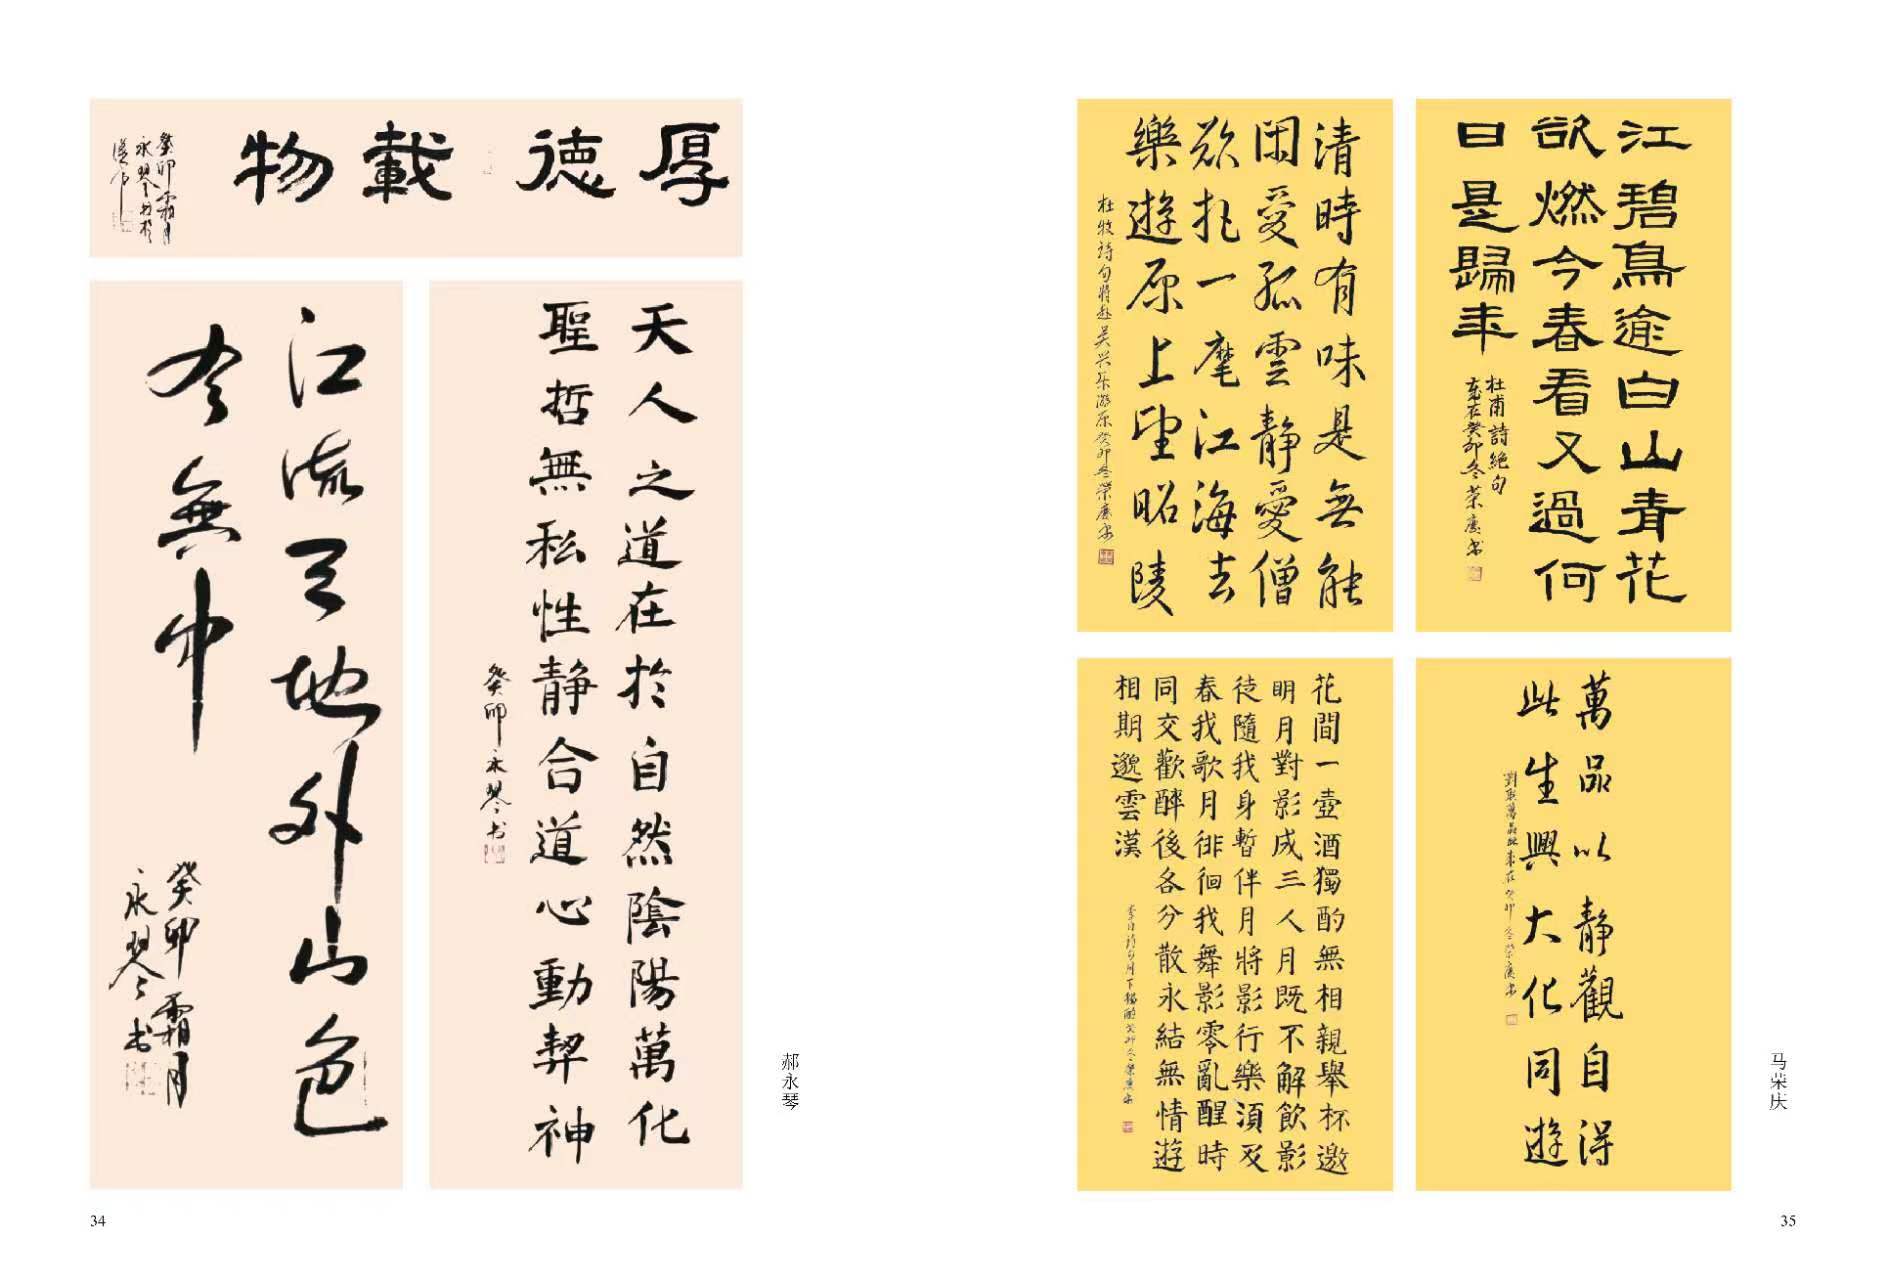 厚德載物
癸卯霜月
永琴书於
天人之道在於自然陰陽萬化
聖哲無私性静合道心動契神
癸卯永琴书
江流天地外山色
有無中
癸卯霜月
永琴书
郝永琴
34
江碧鳥逾白山青花
欲燃今春看又過何
日是歸年
杜甫詩絶句
歲在癸卯冬荣慶书
清時有味是無能
閑愛孤雲静愛僧
欲把一麾江海去
樂遊原上望昭陵
杜牧詩句將赴吴兴乐游原癸卯冬榮慶书
萬品以静觀自得
此生興大化同遊
癸卯冬荣慶书
花間一壺酒獨酌無相親舉杯邀
明月對影成三人月既不解飲影
徒隨我身暫伴月將影行樂須及
春我歌月徘徊我舞影零亂醒時
同交歡醉後各分散永結無情遊
相期邈雲漢
李白詩句月下獨酌癸卯冬榮慶书
马荣庆
35